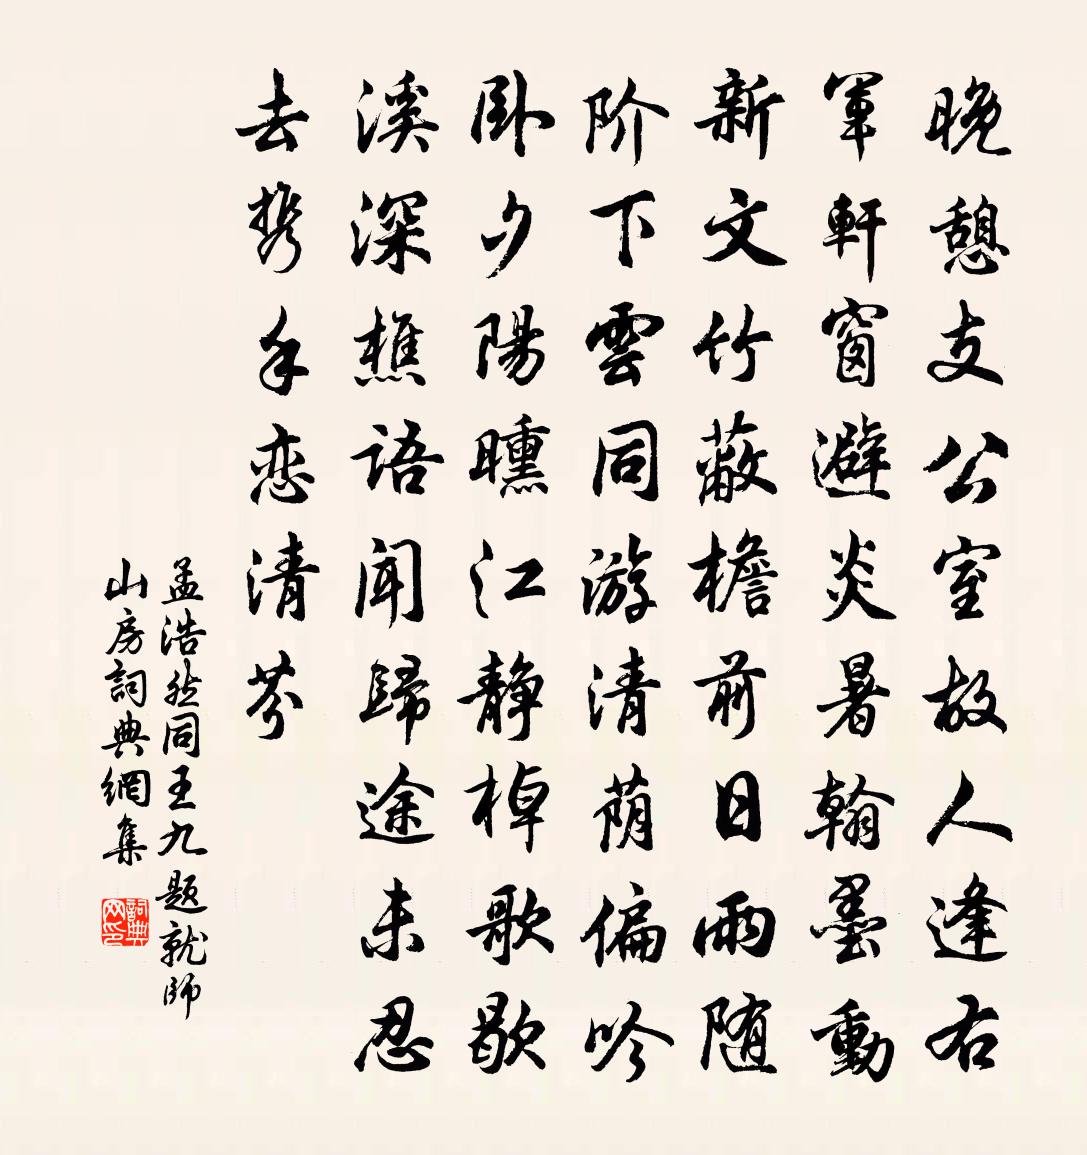 晚憩支公室故人逢右
軍軒窗避炎暑翰墨動
新文竹蔽檐前日雨随
阶下雲同游清荫偏吟
卧夕陽曛江静棹歌歇
溪深樵语闻歸途未忍
去携手恋清芬
孟浩然同王九题就師
山房詞典網集
詞典
网印